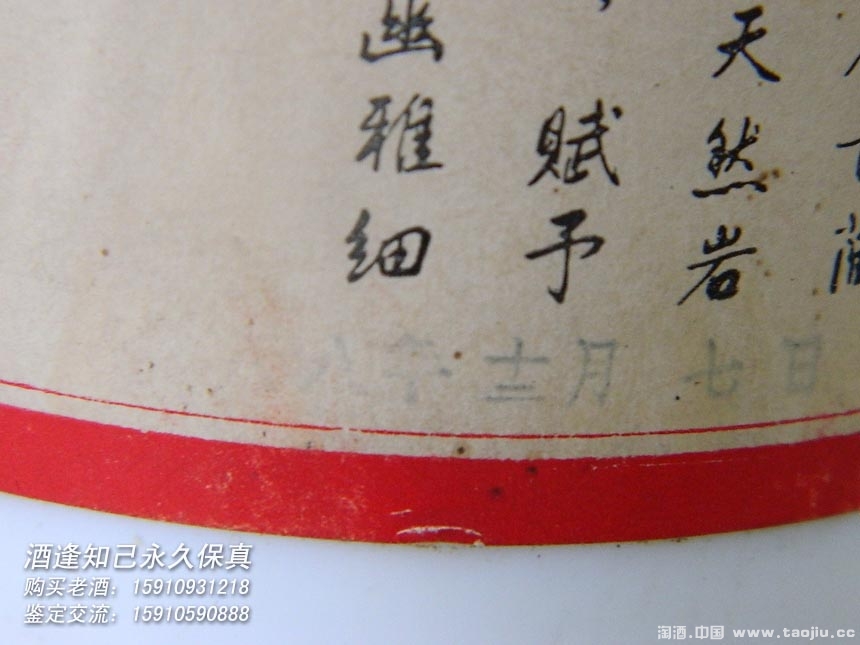 天然岩
赋予
幽雅细
八年十二月七日
酒逢知己永久保真
购买老酒：15910931218
鉴定交流：15910590888
淘酒.中国 www.taojiu.cc